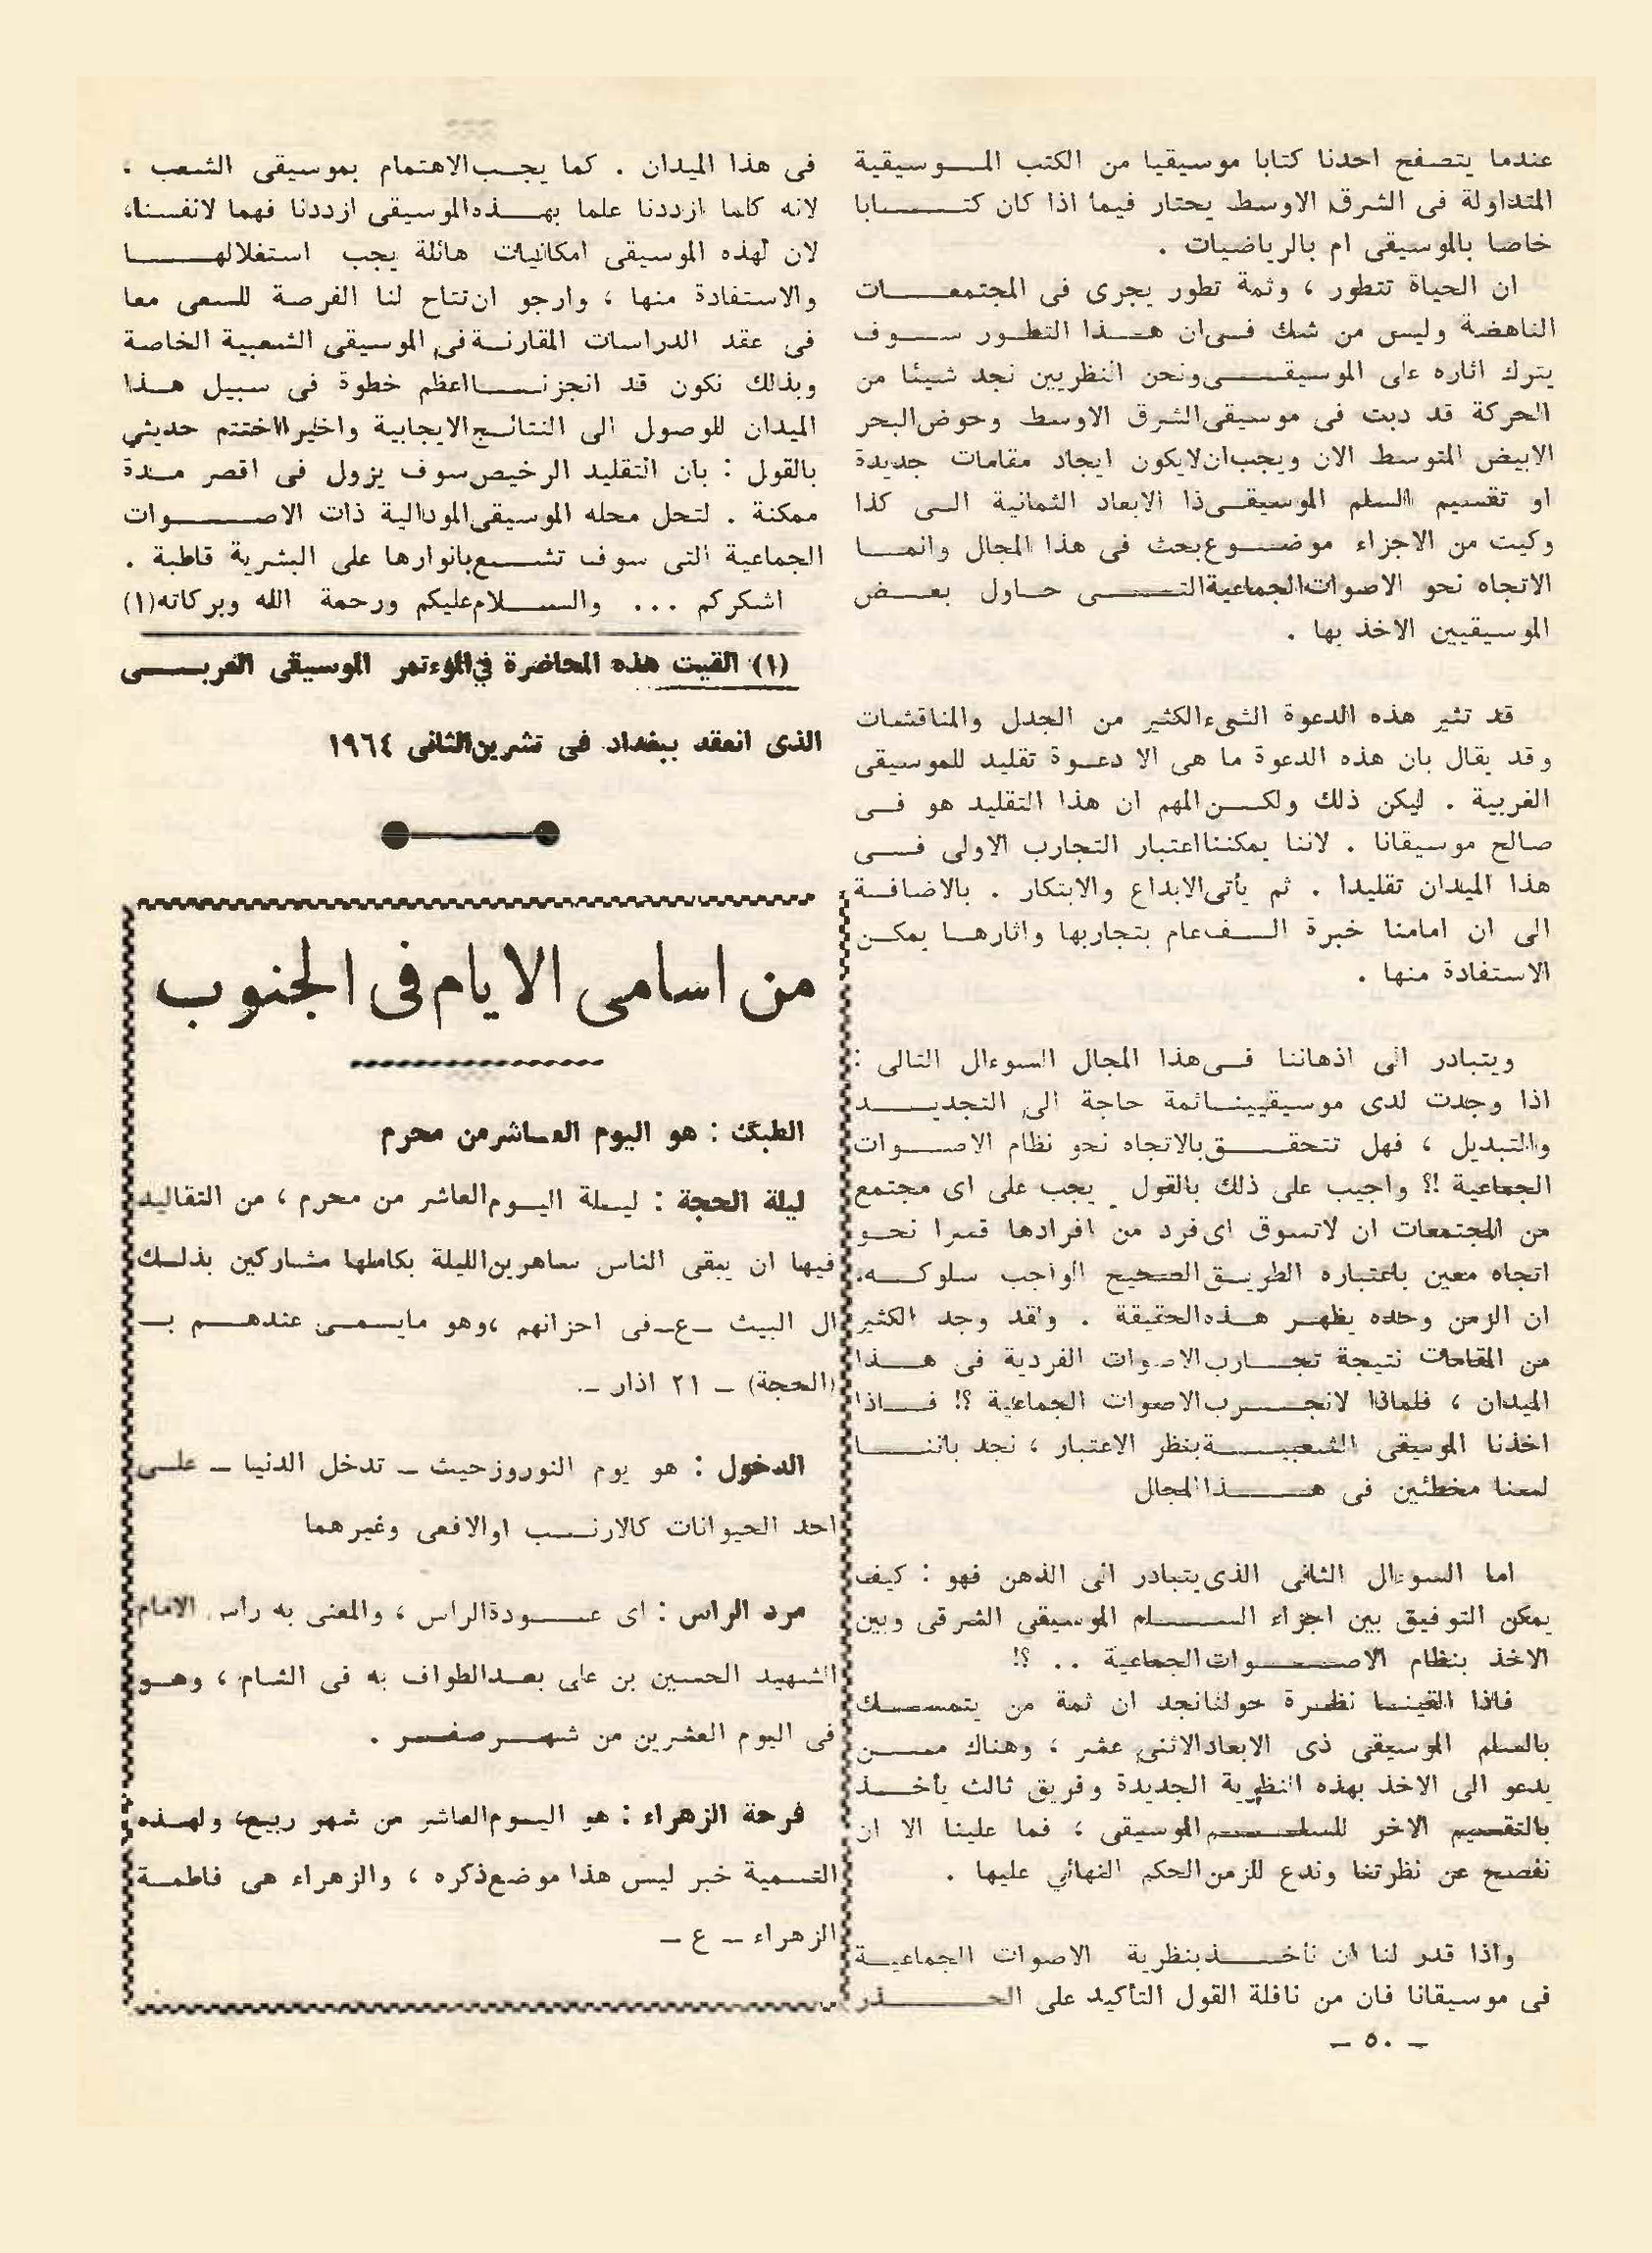 عندما يتصفح احدنا كتابا موسيقيا من الكتب الموسيقية
المتداولة فى الشرق الاوسط يحتار فيما اذا كان كتابا
خاصا بالموسيقى ام بالرياضيات .
ان الحياة تتطور ، وثمة تطور يجرى فى المجتمعات
الناهضة وليس من شك فى ان هذا التطور سوف
يترك اثاره على الموسيقى ونحن النظريين نجد شيئا من
الحركة قد دبت فى موسيقى الشرق الاوسط وحوض البحر
الابيض المتوسط الان ويجب ان لايكون ايجاد مقامات جديدة
او تقسيم السلم الموسيقى ذا الابعاد الثمانية الى كذا
وكيت من الاجزاء موضوع بحث فى هذا المجال وانما
الاتجاه نحو الاصوات الجماعية التى حاول بعض
الموسيقيين الاخذ بها .
قد تثير هذه الدعوة الشىء الكثير من الجدل والمناقشات
وقد يقال بان هذه الدعوة ما هى الا دعوة تقليد للموسيقى
الغربية . ليكن ذلك ولكن المهم ان هذا التقليد هو فى
صالح موسيقانا . لاننا يمكننا اعتبار التجارب الاولى فى
هذا الميدان تقليدا . ثم يأتى الابداع والابتكار . بالاضافة
الى ان امامنا خبرة الف عام بتجاربها واثارها يمكن
الاستفادة منها .
ويتبادر الى اذهاننا فى هذا المجال السوءال التالى :
اذا وجدت لدى موسيقيينا ثمة حاجة الى التجديد
والتبديل ، فهل تتحقق بالاتجاه نحو نظام الاصوات
الجماعية !؟ واجيب على ذلك بالقول . يجب على اى مجتمع
من المجتمعات ان لاتسوق اى فرد من افرادها قسرا نحو
اتجاه معين باعتباره الطريق الصحيح الواجب سلوكه.
ان الزمن وحده يظهر هذه الحقيقة . ولقد وجد الكثير
من المقامات نتيجة تجارب الاصوات الفردية فى هذا
الميدان ، فلماذا لانجرب الاصوات الجماعية ؟! فاذا
اخذنا الموسيقى الشعبية بنظر الاعتبار ، نجد باننا
لسنا مخطئين فى هذا المجال
اما السوءال الثانى الذى يتبادر الى الذهن فهو : كيف
يمكن التوفيق بين اجزاء السلم الموسيقى الشرقى وبين
الاخذ بنظام الاصوات الجماعية .. ؟!
فاذا القينا نظرة حولنا نجد ان ثمة من يتمسك
بالسلم الموسيقى ذى الابعاد الاثنى عشر ، وهناك ممن
يدعو الى الاخذ بهذه النظرية الجديدة وفريق ثالث يأخذ
بالتقسيم الاخر للسلم الموسيقى ، فما علينا الا ان
نفصح عن نظرتنا وندع للزمن الحكم النهائي عليها .
واذا قدر لنا ان نأخذ بنظرية الاصوات الجماعية
فى موسيقانا فان من نافلة القول التأكيد على الحذر
فى هذا الميدان . كما يجب الاهتمام بموسيقى الشعب ،
لانه كلما ازددنا علما بهذه الموسيقى ازددنا فهما لانفسنا،
لان لهذه الموسيقى امكانيات هائلة يجب استغلالها
والاستفادة منها ، وارجو ان تتاح لنا الفرصة للسعى معا
فى عقد الدراسات المقارنة فى الموسيقى الشعبية الخاصة
وبذلك نكون قد انجزنا اعظم خطوة فى سبيل هذا
الميدان للوصول الى النتائج الايجابية واخيرا اختتم حديثي
بالقول : بان التقليد الرخيص سوف يزول فى اقصر مدة
ممكنة . لتحل محله الموسيقى المودالية ذات الاصوات
الجماعية التى سوف تشع بانوارها على البشرية قاطبة .
اشكركم ... والسلام عليكم ورحمة الله وبركاته(١)
(١) القيت هذه المحاضرة في الموءتمر الموسيقى العربى
الذى انعقد ببغداد فى تشرين الثانى ١٩٦٤
من اسامى الايام فى الجنوب
الطبگ : هو اليوم العاشر من محرم
ليلة الحجة : ليلة اليوم العاشر من محرم ، من التقاليد
فيها ان يبقى الناس ساهرين الليلة بكاملها مشاركين بذلك
ال البيث -ع- فى احزانهم ،وهو مايسمى عندهم بـ
(الحجة) - ٢١ اذار -.
الدخول : هو يوم النوروز حيث - تدخل الدنيا - على
احد الحيوانات كالارنب او الافعى وغيرهما
مرد الراس : اى عودة الراس ، والمعنى به رأس الامام
الشهيد الحسين بن على بعد الطواف به فى الشام ، وهو
فى اليوم العشرين من شهر صفر .
فرحة الزهراء : هو اليوم العاشر من شهر ربيع، ولهذه
التسمية خبر ليس هذا موضع ذكره ، والزهراء هى فاطمة
الزهراء - ع -
- ٥٠ -